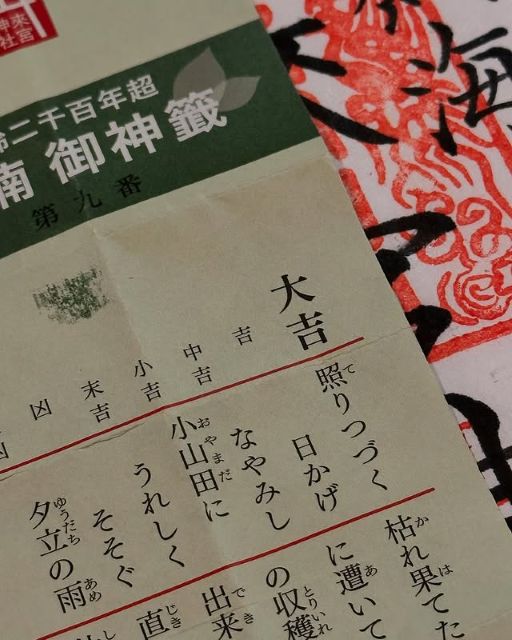 來宮
神社
二千百年超
御神籤
第九番
大吉
吉
中吉
小吉
末吉
凶
照りつづく
日かげ
なやみし
小山田に
うれしく
そそぐ
夕立の雨
枯れ果てた
に遭いて
の収穫
出来
直
海